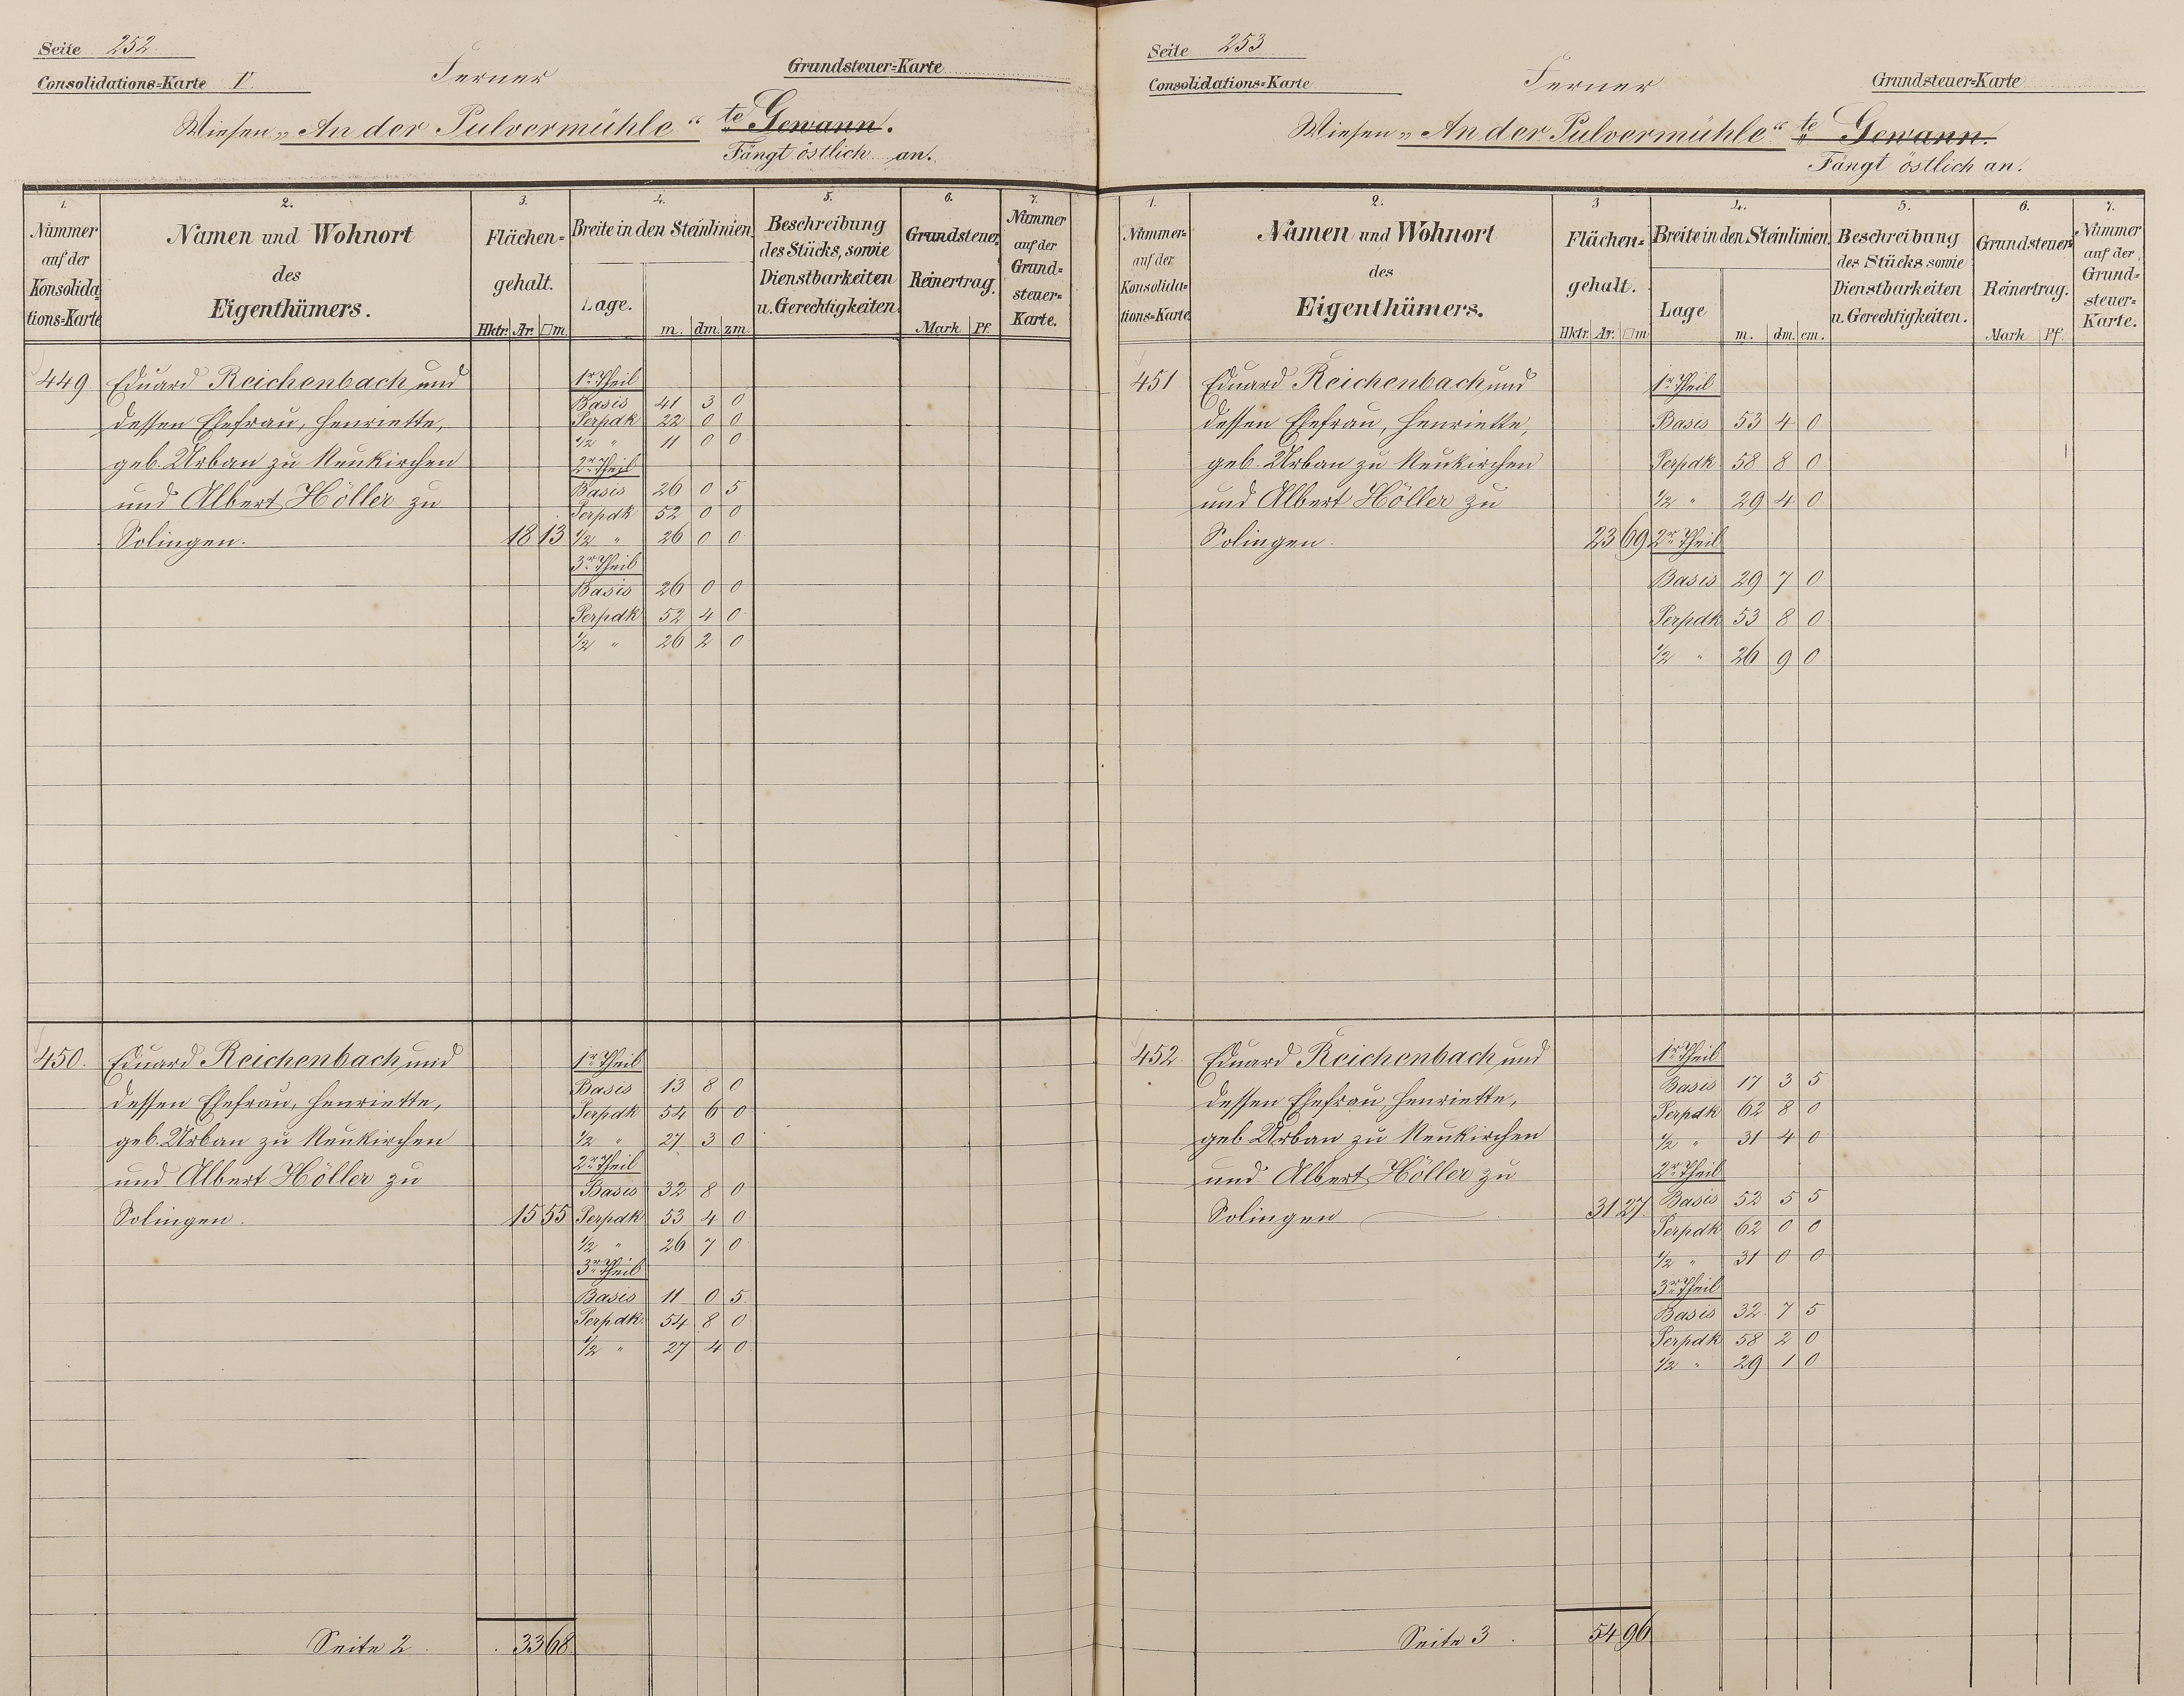 Seite 252.
Consolidations-Karte V.
Ferner
Grundsteuer-Karte
Wiesen „An der Pulvermühle“ te Gewann.
Fängt östlich an.
1. 2. 3. 4. 5. 6. 7.
Nummer auf der Konsolidations-Karte
Namen und Wohnort des Eigenthümers.
Flächen-gehalt. Hktr. Ar. □m
Breite in den Steinlinien. Lage. m. dm. zm.
Beschreibung des Stücks, sowie Dienstbarkeiten u. Gerechtigkeiten.
Grundsteuer Reinertrag. Mark Pf.
Nummer auf der Grund-steuer-Karte.
449 Eduard Reichenbach und 1r Theil
Basis 41 3 0
dessen Ehefrau, Henriette, Perpdk 22 0 0
1/2 " 11 0 0
geb. Urban zu Neukirchen 2r Theil
und Albert Höller zu Basis 26 0 5
Perpdk 52 0 0
Solingen. 18 13 1/2 " 26 0 0
3r Theil
Basis 26 0 0
Perpdk 52 4 0
1/2 " 26 2 0
450. Eduard Reichenbach und 1r Theil
Basis 13 8 0
dessen Ehefrau, Henriette, Perpdk 54 6 0
geb. Urban zu Neukirchen 1/2 " 27 3 0
2r Theil
und Albert Höller zu Basis 32 8 0
Solingen. 15 55 Perpdk 53 4 0
1/2 " 26 7 0
3r Theil
Basis 11 0 5
Perpdk 54 8 0
1/2 " 27 4 0
Seite 2. 33 68
Seite 253
Consolidations-Karte
Ferner
Grundsteuer-Karte
Wiesen „An der Pulvermühle“ te Gewann.
Fängt östlich an.
1. 2. 3 4. 5. 6. 7.
Nummer auf der Konsolida-tions-Karte
Namen und Wohnort des Eigenthümers.
Flächen-gehalt. Hktr. Ar. □m
Breite in den Steinlinien. Lage m. dm. cm.
Beschreibung des Stücks sowie Dienstbarkeiten u. Gerechtigkeiten.
Grundsteuer Reinertrag. Mark Pf.
Nummer auf der Grund-steuer-Karte.
451 Eduard Reichenbach und 1r Theil
dessen Ehefrau, Henriette, Basis 53 4 0
geb. Urban zu Neukirchen Perpdk 58 8 0
und Albert Höller zu 1/2 " 29 4 0
Solingen. 23 69 2r Theil
Basis 29 7 0
Perpdk 53 8 0
1/2 " 26 9 0
452. Eduard Reichenbach und 1r Theil
Basis 17 3 5
dessen Ehefrau, Henriette, Perpdk 62 8 0
geb Urban zu Neukirchen 1/2 " 31 4 0
und Albert Höller zu 2r Theil
Solingen 31 27 Basis 52 5 5
Perpdk 62 0 0
1/2 " 31 0 0
3r Theil
Basis 32 7 5
Perpdk 58 2 0
1/2 " 29 1 0
Seite 3. 54 96